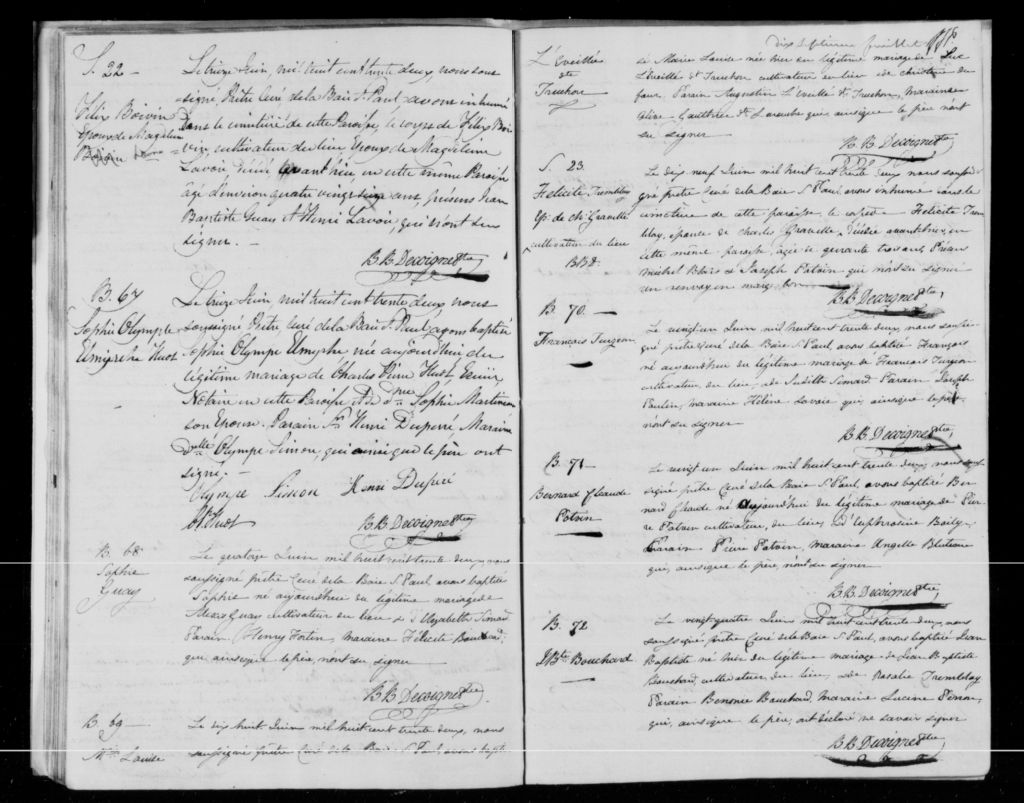 S. 22
Felix Boivin
Epoux de Magdelene
Lavoie
Le treize Juin, mil huit cent trente deux nous sous
signé, Prêtre Curé de la Baie St. Paul avons inhumé
dans le cimetière de cette Paroisse, le corps de Felix Boi
vin cultivateur du lieu Epoux de Magdelene
Lavoie, décédé avant hier, en cette même Paroisse
âgé d'environ quatre vingt ans, présens Jean
Baptiste Guai et Henri Lavoie, qui n'ont su
signer. —
B. B. Decoigne Ptre
B. 67
Sophie Olympe
Elmire Huot
Le treize Juin, mil huit cent trente deux nous
soussigné Prêtre Curé de la Baie St. Paul avons baptisé
Sophie Olympe née aujourd'hui du
légitime mariage de Charles Pierre Huot, Ecuier
Notaire en cette Paroisse et de Dme Sophie
son Epouse. Parain Henri Dupéré Maraine
Dlle Olympe Simon, qui ainsi que le père ont
signé. —
Olympe Simon Henri Dupéré
Huot
B. B. Decoigne Ptre
B. 68
Sophie
Guay
Le quatorze Juin mil huit cent trente deux, nous
soussigné prêtre Curé de la Baie St Paul, avons baptisé
Sophie né aujourd'hui du légitime mariage de
Alexis Guay cultivateur du lieu & d'Elizabeth Simard
Parain Henry Fortin, Maraine Félicité Bouchard,
qui ainsi que le père, n'ont su signer
B. B. Decoigne Ptre
B. 69
Mie Louise
Le dix huit Juin mil huit cent trente deux, nous
soussigné prêtre Curé de la Baie St Paul avons bapti
Dix septieme feuillet
L'Eveillée
dte
Truchon
sé Marie Louise née hier du légitime mariage de Luc
l'Eveillé dt Truchon cultivateur du lieu & de Christine du
four. Parain Augustin L'Eveillé dt Truchon, Maraine
Gauthier dt Larouche qui ainsi que le père n'ont
su signer
B. B. Decoigne Ptre
S. 23.
Félicité Tremblay
Ep. de Ch. Gravelle
cultivateur du lieu
BBD.
Le dix neuf Juin mil huit cent trente deux nous soussi
gné prêtre Curé de la Baie St Paul, avons inhumé dans le
cimetière de cette paroisse, le corps de Félicité Trem
blay, épouse de Charles Gravelle, décédée avant hier, en
cette même paroisse, âgée de quarante trois ans, Présens
Michel Blais & Joseph Potvin qui n'ont su signer
un renvoi en marge bon
B. B. Decoigne Ptre
B. 70. —
François Turgeon
Le vingt un Juin mil huit cent trente deux, nous soussi
gné prêtre Curé de la Baie St Paul, avons baptisé François
né aujourd'hui du légitime mariage de François Turgeon
cultivateur du lieu, & de Judith Simard Parain Joseph
Paulin, maraine Hélène Lavoie qui, ainsi que le père
n'ont su signer
B. B. Decoigne Ptre
B. 71 —
Bernard Claude
Potvin
Le vingt un Juin mil huit cent trente deux, nous sous
signé prêtre Curé de la Baie St Paul, avons baptisé Ber
nard Claude né aujourd'hui du légitime mariage de Pier
re Potvin cultivateur, du lieu, & d'Euphrosine Boily
Parain Pierre Potvin, maraine Angelle
qui, ainsi que le père, n'ont su signer
B. B. Decoigne Ptre
B. 72
J. Bte Bouchard
Le vingt quatre Juin mil huit cent trente deux, nous
soussigné prêtre Curé de la Baie St Paul, avons baptisé Jean
Baptiste né hier du légitime mariage de Jean Baptiste
Bouchard, cultivateur du lieu, & de Rosalie Tremblay
Parain Bouchard, Maraine Lucine
qui, ainsi que le père, ont déclaré ne savoir signer
B. B. Decoigne Ptre